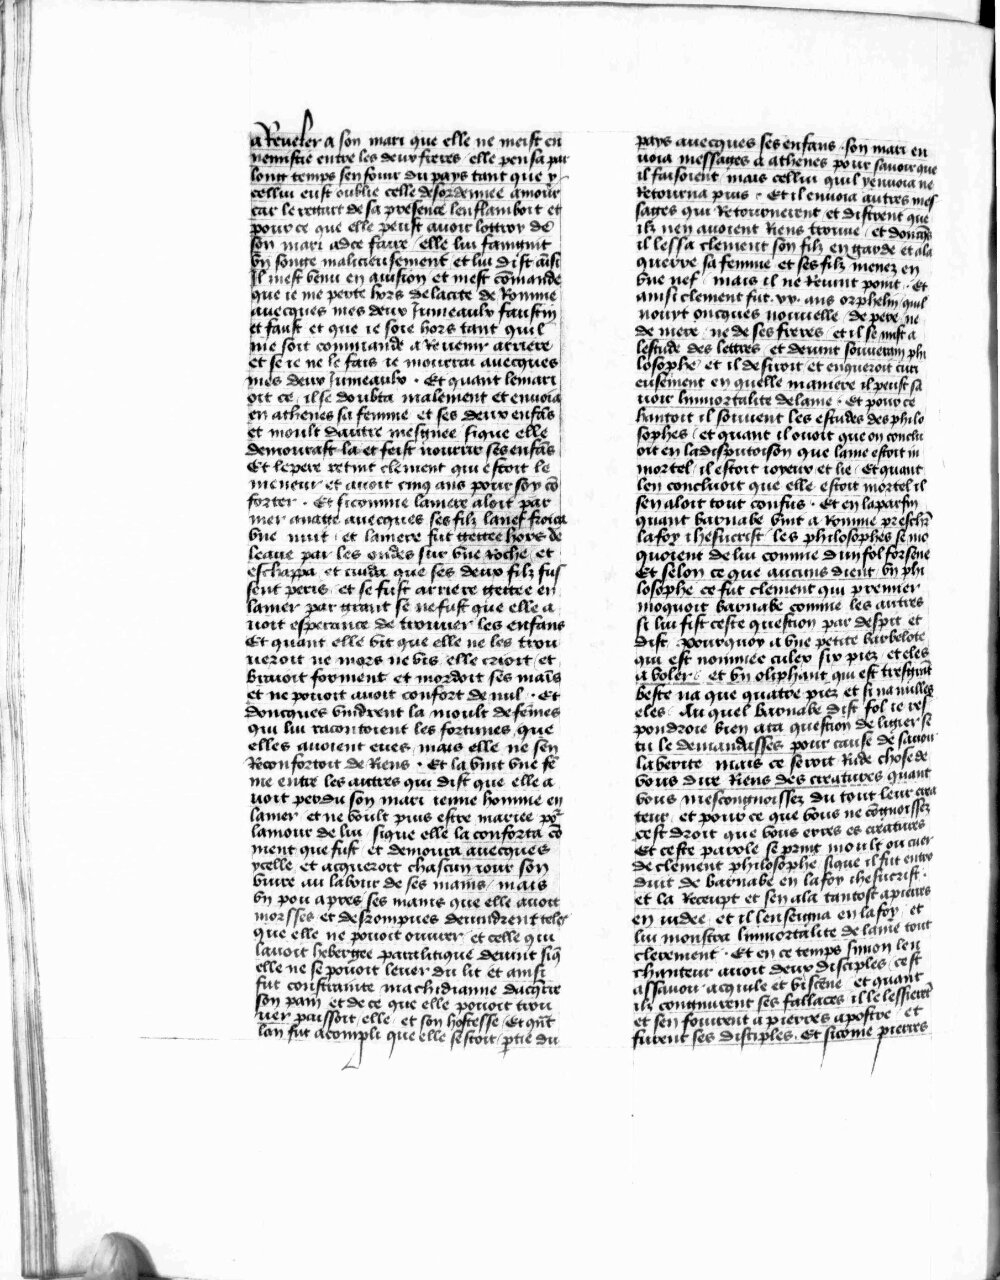 a Reveler a son mari que elle ne meist en
nemistie entre les deux freres elle pensa par
long temps sen fouir du pays tant que y
cellui eust oublie celle desordennee amour
car le regart de sa presence lenflamboit et
pour ce que elle peust avoir lottroy de
son mari adce faire / elle lui faingnit
vn songe malicieusement et lui dist ainsi
Il mest venu en auision et mest comande
que ie me perte hors de la cite de Romme
auecques mes deux Jumeaulx faustin
et faust et que ie soie hors tant quil
me soit commande a Reuenir arriere
et se ie ne le fais ie mourrai auecques
mes deux Jumeaulx . Et quant le mari
oit ce / il se doubta malement et envoia
en athenes sa femme et ses deux enfans
et moult dautre mesgnee sique elle
demourast la et feist nourrir ses enfans
Et le pere retint clement qui estoit le
meneur et auoit cinq ans pour soy con
forter . Et sicomme la mere aloit par
mer anatge auecques ses filz la nef froica
vne nuit / et la mere fut gettee hors de
leaue par les ondes sur vne roche / et
eschappa et cuida que ses deux filz fus
sent peris / et se fust arriere gettee en
la mer par grant se ne fust que elle a
uoit esperance de trouuer les enfans
Et quant elle vit que elle ne les trou
ueroit ne mors ne vis / elle crioit / et
braioit forment et mordoit ses mains
et ne pouoit auoir confort de nul . Et
doncques vindrent la moult de femes
qui lui racontoient les fortunes que
elles auoient eues / mais elle ne sen
Reconfortoit de Riens . Et la vint vne fe
me entre les autres qui dist que elle a
uoit perdu son mari ienne homme en
la mer / et ne voult puis estre mariee por
lamour de lui / sique elle la conforta co
ment que fust / et demoura auecques
ycelle / et acqueroit chascun iour son
viure au labour de ses mains / mais
vn pou apres ses mains que elle auoit
morsses et desrompues deuindrent teles
que elle ne pouoit ouurer / et celle qui
lauoit hebergee paralitique deuint siq
elle ne se pouoit leuer du lit / et ainsi
fut constrainte machidianne dacquerre
son pain / et de ce que elle pouoit trou
uer paissoit elle / et son hostesse / Et quant
lan fut acompli que elle sestoit partie du
pays auecques ses enfans . son mari en
uoia messages a athenes pour sauoir que
il faisoient mais cellui quil y enuoia ne
Retourna puis . Et il enuoia autres mes
sages qui Retournerent et distrent que
ilz nen auoient Riens trouue / et doncqs
il lessa clement son filz en garde et ala
querre sa femme et ses filz menez en
vne nef / mais il ne Reuint point . Et
ainsi clement fut .xx. ans orphelin quil
nouyt oncques nouuelle / de pere / ne
de mere / ne de ses freres / et il se mist a
lestude des lettres / et deuint souuerain phi
losophe / et il desiroit et enqueroit curi
eusement en quelle maniere il peust sa
uoir limmortalite de lame . Et pour ce
hantoit il souuent les estudes des philo
sophes / et quant il ouoit que on conclu
oit en la disputoison que lame estoit in
mortel / il estoit ioyeux et lie / Et quant
len concluoit que elle estoit mortel il
sen aloit tout confus . Et en la parfin
quant barnabe vint a Romme preschier
la foy ihesucrist / les philosophes se mo
quoient de lui comme dun fol forsene
Et selon ce que aucuns dient / vn phi
losophe ce fut clement qui premier
moquoit barnabe comme les autres
si lui fist ceste question par despit et
dist . Pourquoy a vne petite barbelote
qui est nommee culex six piez / et eles
a voler / et vn oliphant qui est tresgrant
beste na que quatre piez et si na nulles
eles . Au quel barnabe dist / fol ie res
pondroie bien a ta question de ligier se
tu le demandasses pour cause de sauoir
la verite / mais ce seroit Rude chose de
vous dire Riens des creatures quant
vous mescongnoissez du tout leur crea
teur / et pour ce que vous ne congnoissez
cest droit que vous erres es creatures
Et ceste parole se print moult ou cuer
de clement philosophe / sique il fut entro
duit de barnabe en la foy ihesucrist .
et la Receupt et sen ala tantost a pierres
en iudee / et il lenseigna en la foy / et
lui monstra limmortalite de lame tout
clerement . Et en ce temps simon len
chanteur auoit deux disciples / cest
assauoir acquile et viscene / et quant
ilz congnurent ses fallaces / il le lessierent
et sen fouirent a pierres apostre / et
furent ses disciples . Et sicome pierres